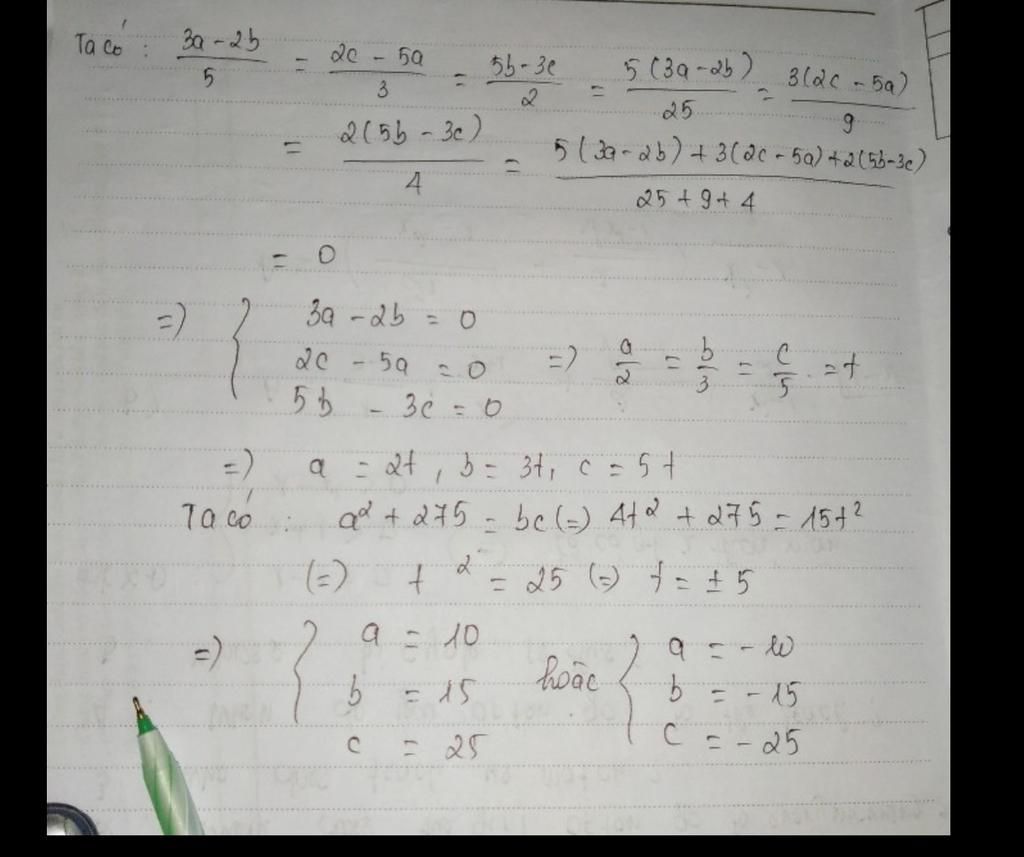 Ta có: (3a-2b)/5 = (2c - 5a)/3 = (5b-3c)/2 = 5(3a-2b)/25 = 3(2c - 5a)/9
= 2(5b - 3c)/4 = (5(3a-2b)+3(2c-5a)+2(5b-3c))/(25+9+4)
= 0
=> { 3a - 2b = 0
2c - 5a = 0 => a/2 = b/3 = c/5 = t
5b - 3c = 0
=> a = 2t, b = 3t, c = 5t
Ta có: a² + 275 = bc (=) 4t² + 275 = 15t²
(=) t² = 25 (=) t = ± 5
=> { a = 10 hoặc { a = -10
b = 15 b = -15
c = 25 c = -25